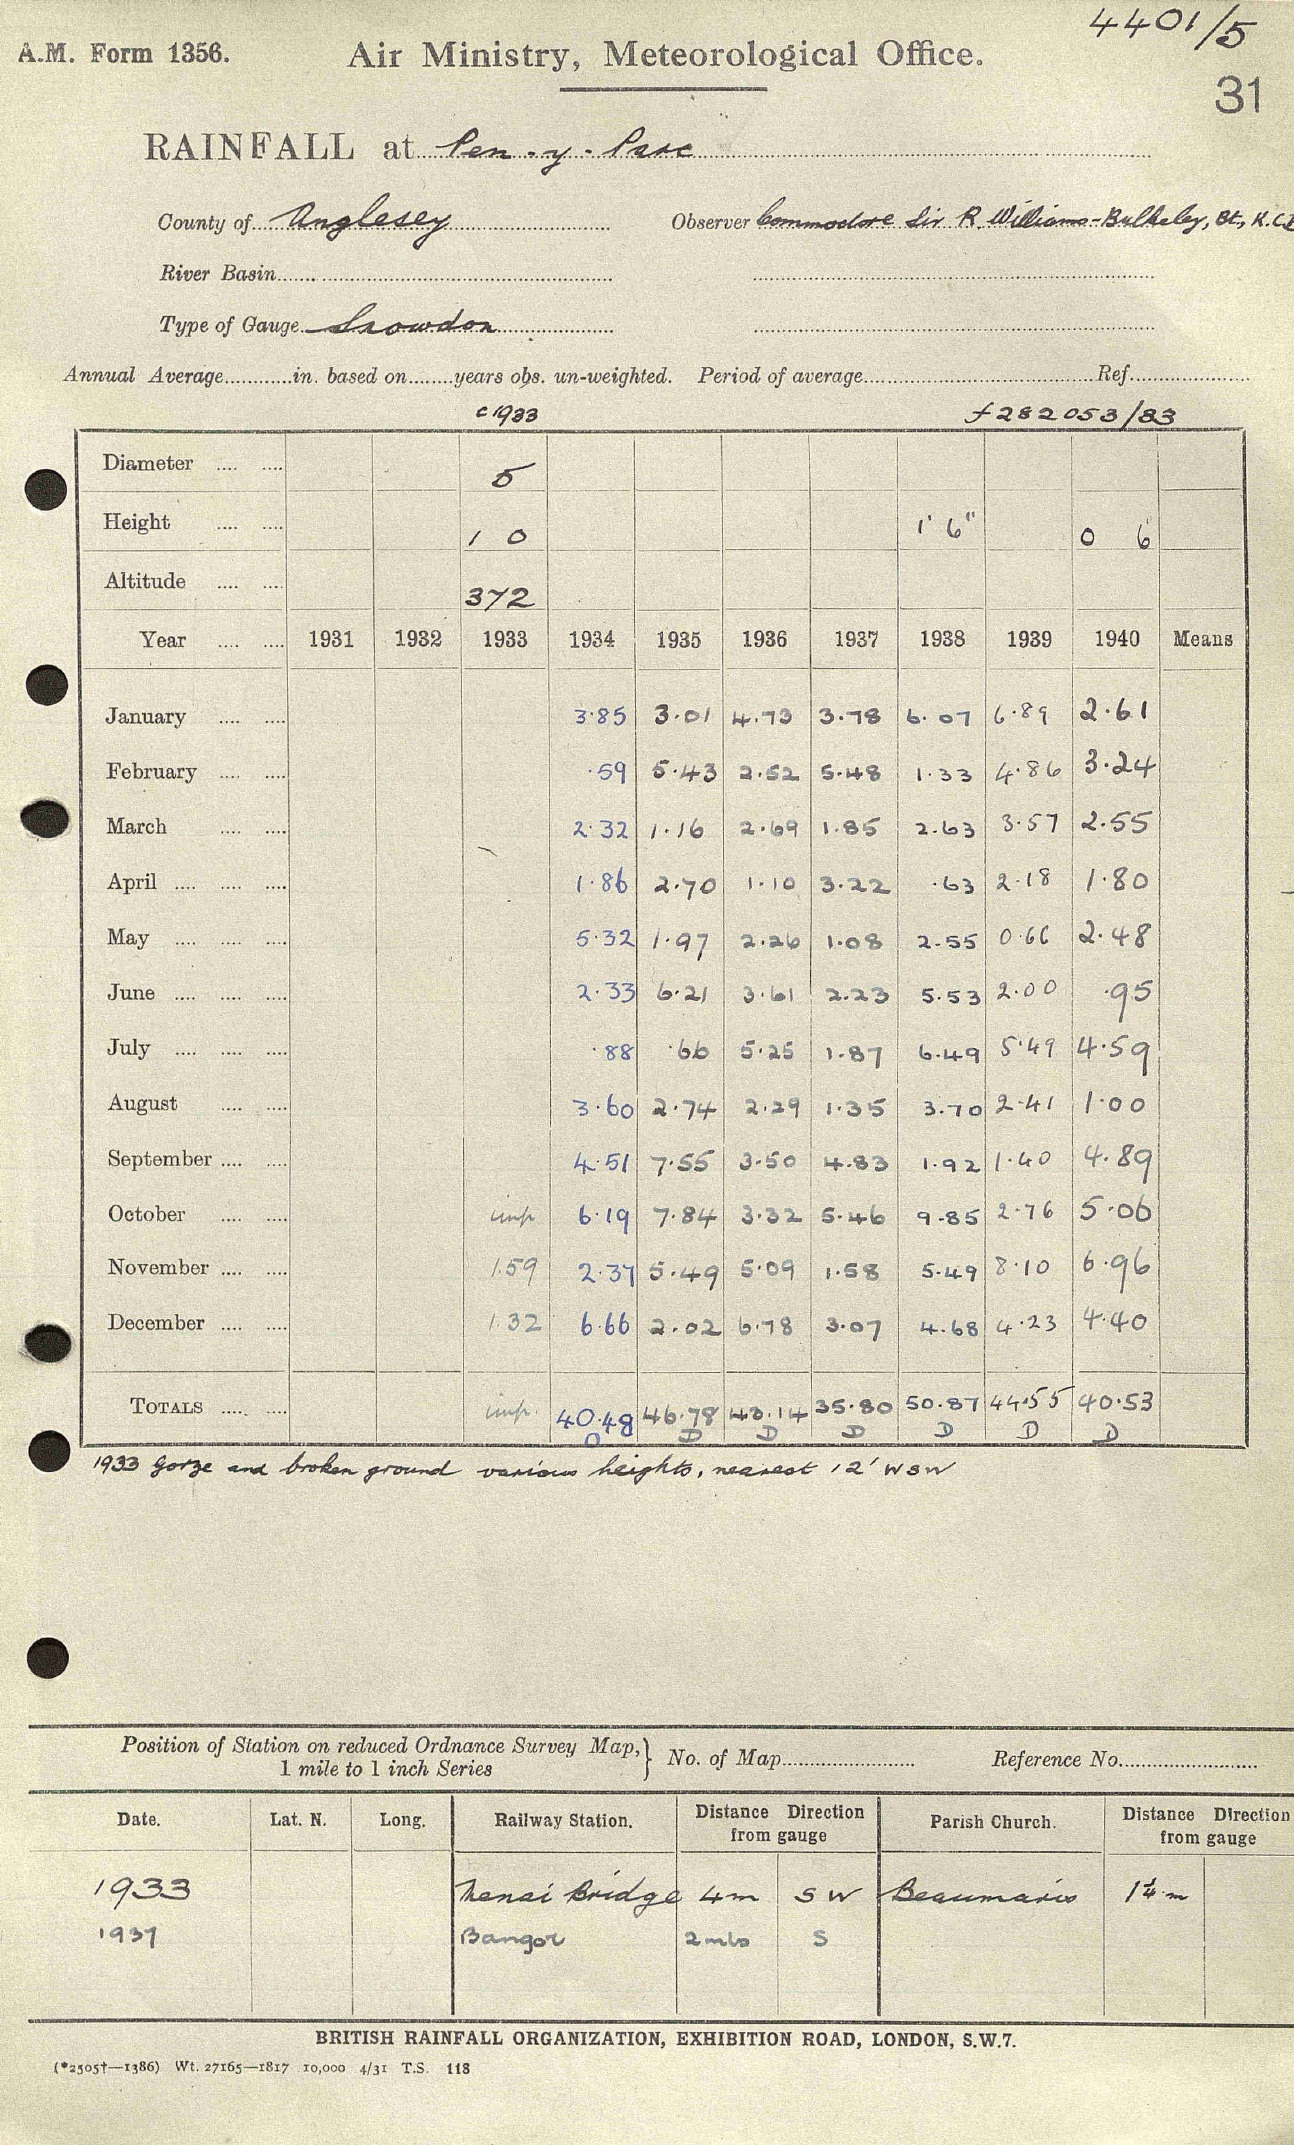 4401/5
A.M. Form 1356. Air Ministry, Meteorological Office.
31
RAINFALL at Pen-y-Parc
County of Anglesey Observer Commodore Sir R. Williams-Bulkeley, Bt., K.C.B
River Basin
Type of Gauge Snowdon
Annual Average in. based on years obs. un-weighted. Period of average Ref.
c 1933 f 282053/83
Diameter 5
Height 1 0 1' 6" 0 6
Altitude 372
Year 1931 1932 1933 1934 1935 1936 1937 1938 1939 1940 Means
January 3.85 3.01 4.73 3.78 6.07 6.89 2.61
February .59 5.43 2.52 5.48 1.33 4.86 3.24
March 2.32 1.16 2.69 1.85 2.63 3.57 2.55
April 1.86 2.70 1.10 3.22 .63 2.18 1.80
May 5.32 1.97 2.26 1.08 2.55 0.66 2.48
June 2.33 6.21 3.61 2.23 5.53 2.00 .95
July .88 .66 5.25 1.87 6.49 5.49 4.59
August 3.60 2.74 2.29 1.35 3.70 2.41 1.00
September 4.51 7.55 3.50 4.83 1.92 1.40 4.89
October imp 6.19 7.84 3.32 5.46 9.85 2.76 5.06
November 1.59 2.37 5.49 5.09 1.58 5.49 8.10 6.96
December 1.32 6.66 2.02 6.78 3.07 4.68 4.23 4.40
TOTALS imp. 40.48 46.78 43.14 35.80 50.87 44.55 40.53
D D D D D D D
1933 Gorze and broken ground various heights, nearest 12' WSW
Position of Station on reduced Ordnance Survey Map, } No. of Map Reference No.
1 mile to 1 inch Series
Date. Lat. N. Long. Railway Station. Distance Direction from gauge Parish Church. Distance Direction from gauge
1933 Menai Bridge 4m SW Beaumaris 1¼ m
1937 Bangor 2 mls S
BRITISH RAINFALL ORGANIZATION, EXHIBITION ROAD, LONDON, S.W.7.
(*2505†—1386) Wt. 27165—1817 10,000 4/31 T.S. 118